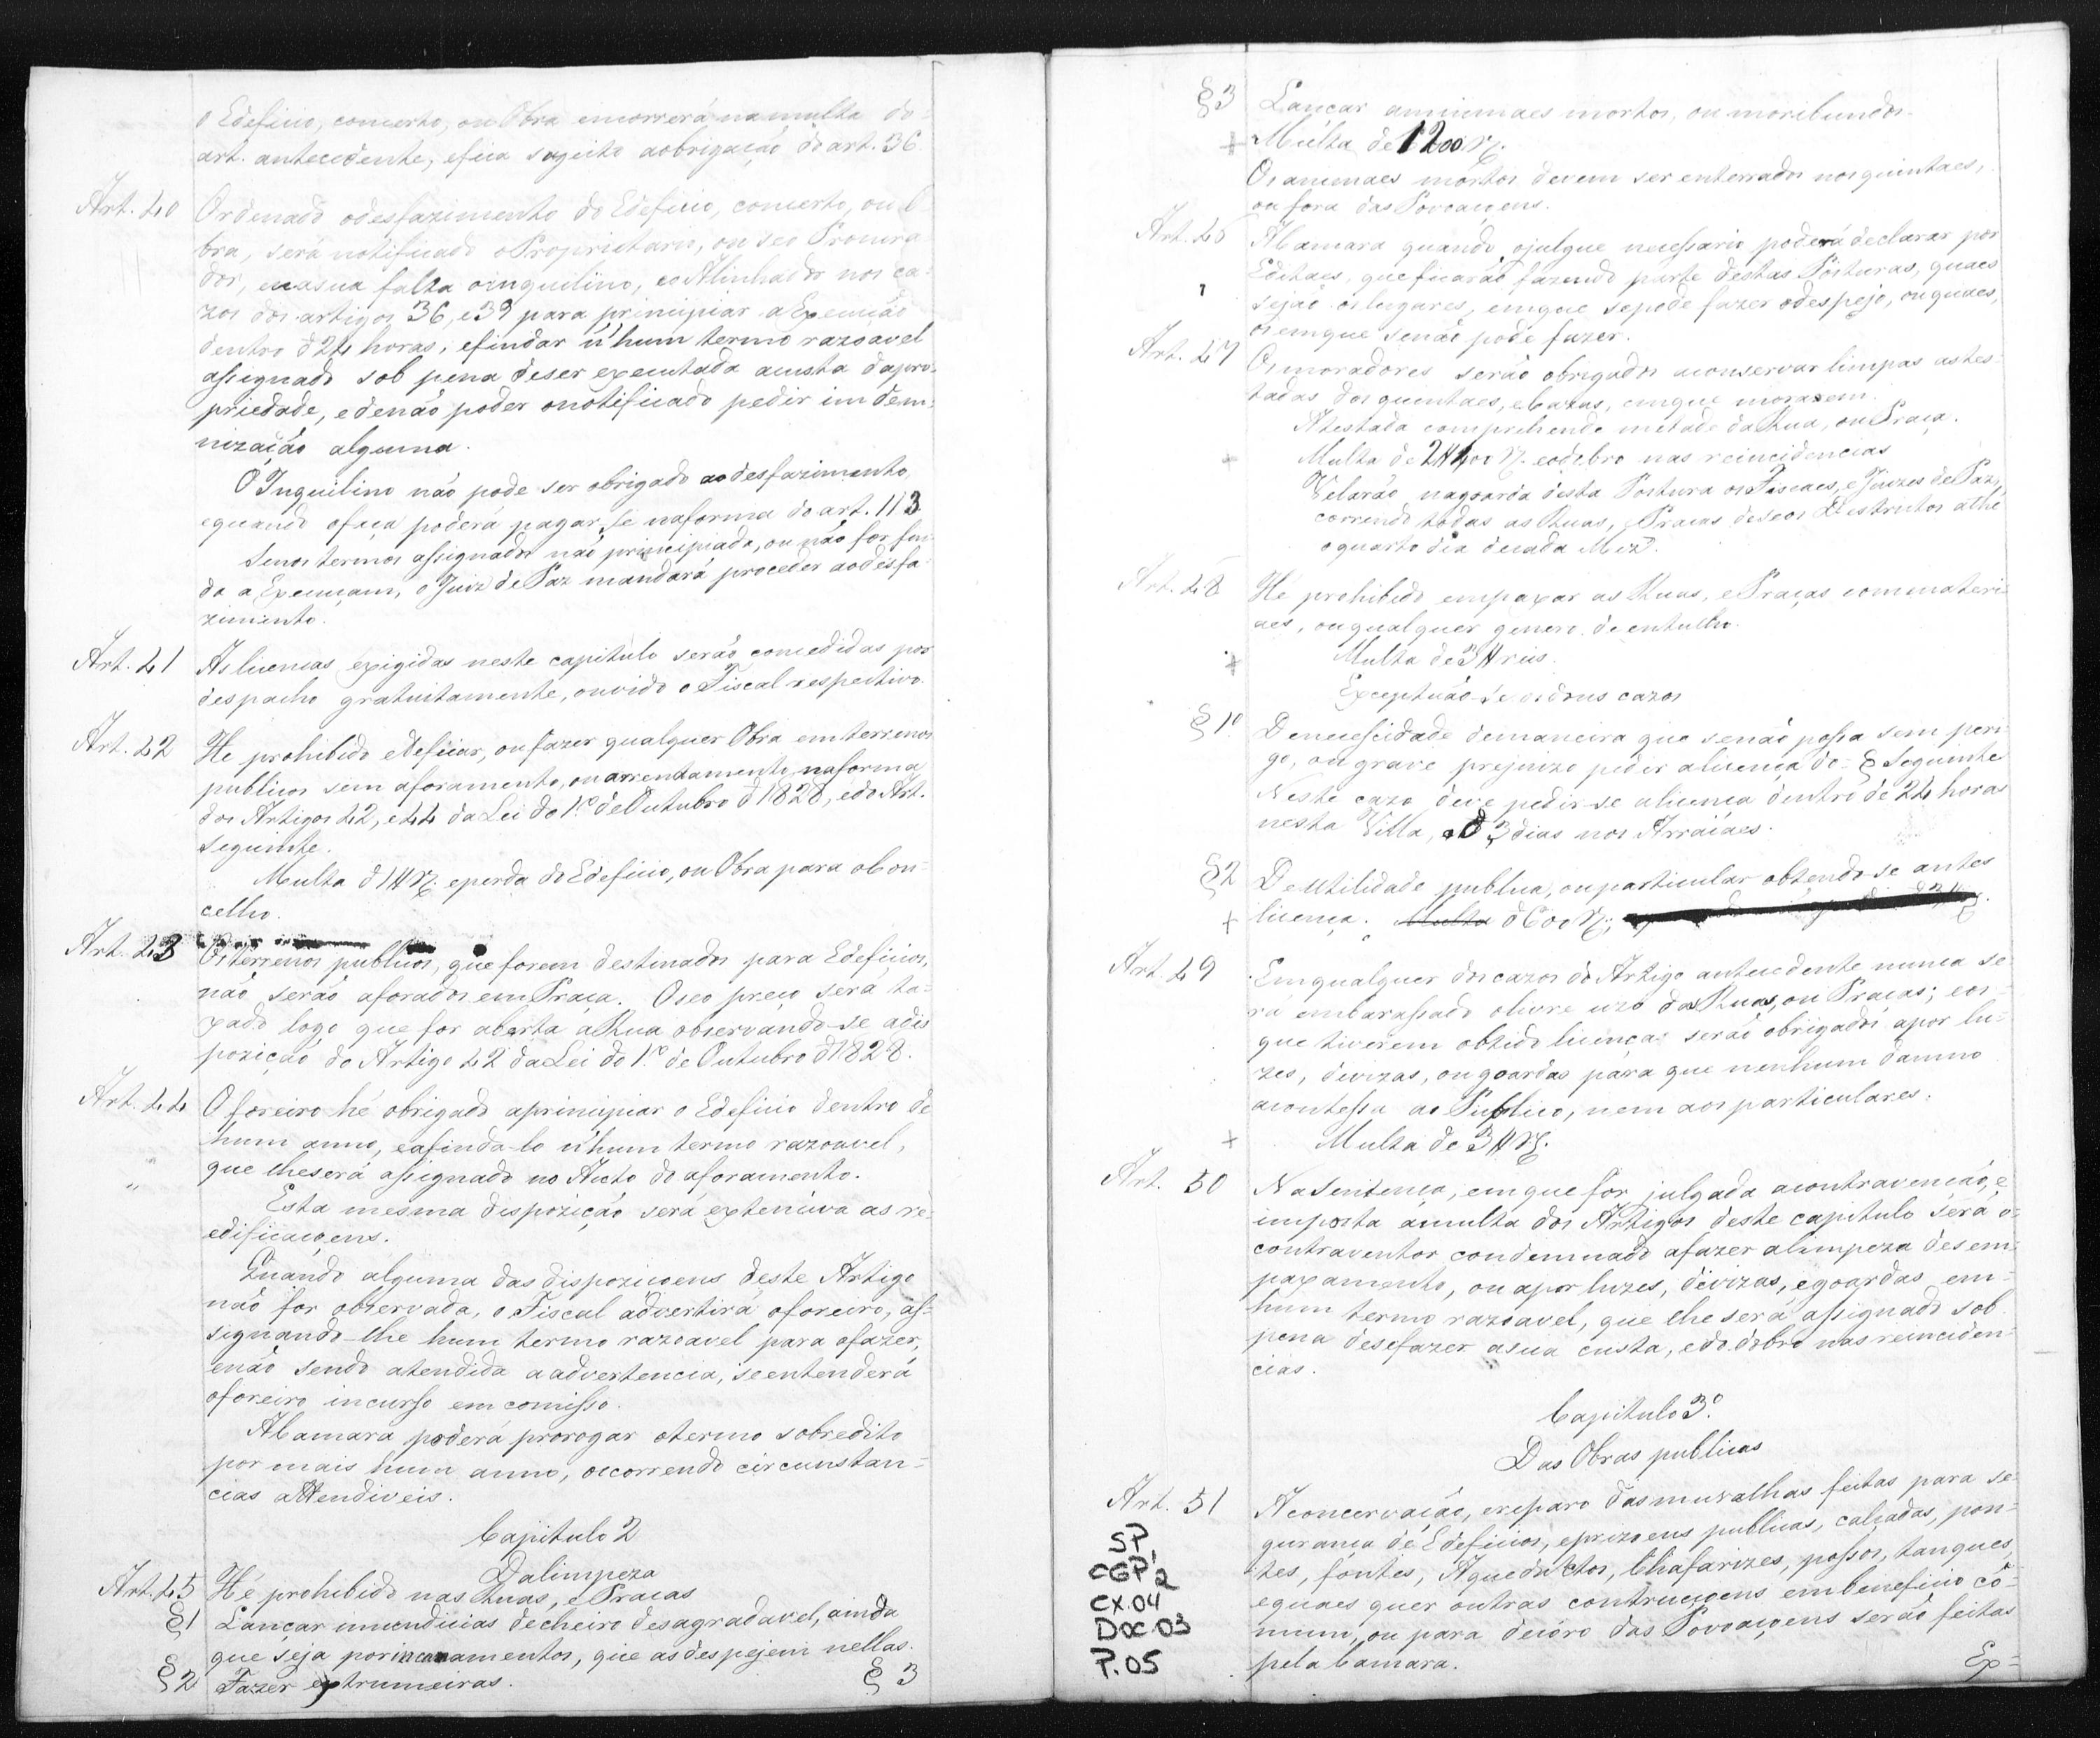 o Edeficio, concerto, ou Obra encorrerá na multa do
art. antecedente, e fica sugeito a obrigação do art. 36.
Art. 40 Ordenado o desfazimento do Edeficio, concerto, ou O
bra, será notificado o Proprietario, ou seo Procura
dor, e na sua falta o inquilino, e o Alinhador nos ca-
zos dos artigos 36, e 39 para principiar a Execução
dentro d 24 horas, e findar n'hum termo razoavel
assignado sob pena de ser executada a custa da pro-
priedade, e de não poder o notificado pedir indem-
nização alguma.
O Inquilino não pode ser obrigado ao desfazimento,
e quando o faça poderá pagar-se na forma do art. 113
Se nos termos assignados não principiada, ou não for fin-
da a Execuçam, o Juiz de Paz mandará proceder ao desfa-
zimento.
Art. 41 As licencas exigidas neste capitulo serão concedidas por
despacho gratuitamente, ouvido o Fiscal respectivo.
Art. 42 He prohibido edeficar, ou fazer qualquer Obra em terrenos
publicos sem aforamento, ou arrentamento na forma
dos Artigos 42, e 44 da Lei do 1º de Outubro d 1828, e do Art.
Seguinte.
Multa d 1$ rs. e perda do Edeficio, ou Obra para o Con-
celho.
Art. 43 Os terrenos publicos, que forem destinados para Edeficios,
não serão aforados em Praça. O seo preço será ta-
xado logo que for aberta a Rua observando-se a dis
pozição do Artigo 42 da Lei do 1º de Outubro d 1828.
Art. 44 O foreiro hé obrigado a principiar o Edeficio dentro de
hum anno, e a finda-lo n'hum termo razoavel,
que lhe será assignado no Aucto do aforamento.
Esta mesma dispozição será extenciva as re-
edificaçoens.
Quando alguma das dispozicoens deste Artigo
não for observada, o Fiscal advertirá o foreiro, as-
signando-lhe hum termo razoavel para o fazer,
e não sendo atendida a advertencia, se entenderá
o foreiro incurso em comisso.
A Camara poderá prorogar o termo sobredito
por mais hum anno, occorrendo circunstan-
cias attendiveis.
Capitulo 2
Da limpeza
Art. 45 Hé prohibido nas Ruas, e Pracas
§1 Lançar inmundicias de cheiro desagradavel, ainda
que seja por incanamentos, que as despejem nellas.
§2 Fazer extrumeiras.
§3
§3 Lançar annimaes mortos, ou moribundos.
+ Múlta de 1200 rs.
Os animaes mortos devem ser enterrados nos quintaes,
ou fora das Povoaçoens.
Art. 46 A Camara quando o julgue necessario poderá declarar por
Editaes, que ficarão fazendo parte destas Posturas, quaes
sejão os lugares, em que se pode fazer o despejo, ou quaes,
os em que se não pode fazer.
Art. 47 Os moradores serão obrigados a conservar limpas as tes-
tadas dos quintaes, e Cazas, em que morarem.
A testada comprehende metade da Rua, ou Praça.
Multa de 2$400 rs. e o dobro nas reincidencias
Velarão na goarda desta Postura os Fiscaes, e Juizes de Paz,
correndo todas as Ruas, e Pracas de seos Destrictos athé
o quarto dia de cada Mez.
Art. 48 Hé prohibido empaxar as Ruas, e Praças com materi-
aes, ou qualquer genero de entulho.
+ Multa de 3$ reis.
Exceptuão-se os dous cazos
§1º De necessidade de maneira que se não possa sem peri-
go, ou grave prejuizo pedir a licença do § Seguinte
Neste cazo deve pedir-se a licença dentro de 24 horas
nesta Villa, e d 3 dias nos Arraiaes.
§2 De utilidade publica, ou particular obtendo-se antes
+ licença. Multa d 600 rs;
Art. 49 Em qualquer dos cazos do Artigo antecedente nunca se-
rá embarassado o livre uzo das Ruas, ou Pracas; e os
que tiverem obtido licenças serão obrigados a por lu-
zes, devizas, ou goardas para que nenhum damno
acontessa ao Publico, nem aos particulares.
+ Multa de 3$ rs.
Art. 50 Na Sentença, em que for julgada a contravenção, e
imposta a multa dos Artigos deste capitulo será o
contraventor condemnado a fazer a limpeza desem-
paxamento, ou a por luzes, devizas, e goardas em
hum termo razoavel, que lhe será assignado sob
pena de se fazer a sua custa, e do dobro nas reinciden-
cias.
Capitulo 3º
Das Obras publicas
Art. 51 A concervação, e reparo das muralhas feitas para se-
gurança de Edeficios, e prizoens publicas, calçadas, pon-
tes, fontes, Aqueductos, Chafarizes, possos, tanques,
e quaes quer outras contruccoens em beneficio cõ-
mum, ou para decóro das Povoaçoens serão feitas
pela Camara.
Ex-
SP1
CGP2
CX.04
DOC.03
P.05